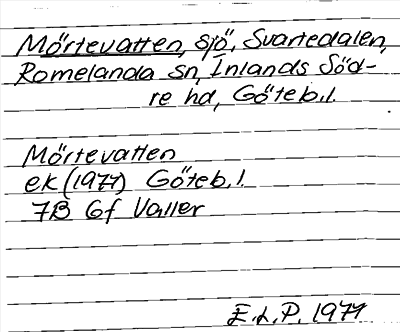 Mörtevatten, sjö, Svartedalen,
Romelanda sn, Inlands Söd-
re hd, Göteb.l.
Mörtevatten
ek (1977) Göteb.l.
7B Gf Valler
E.L.P. 1977